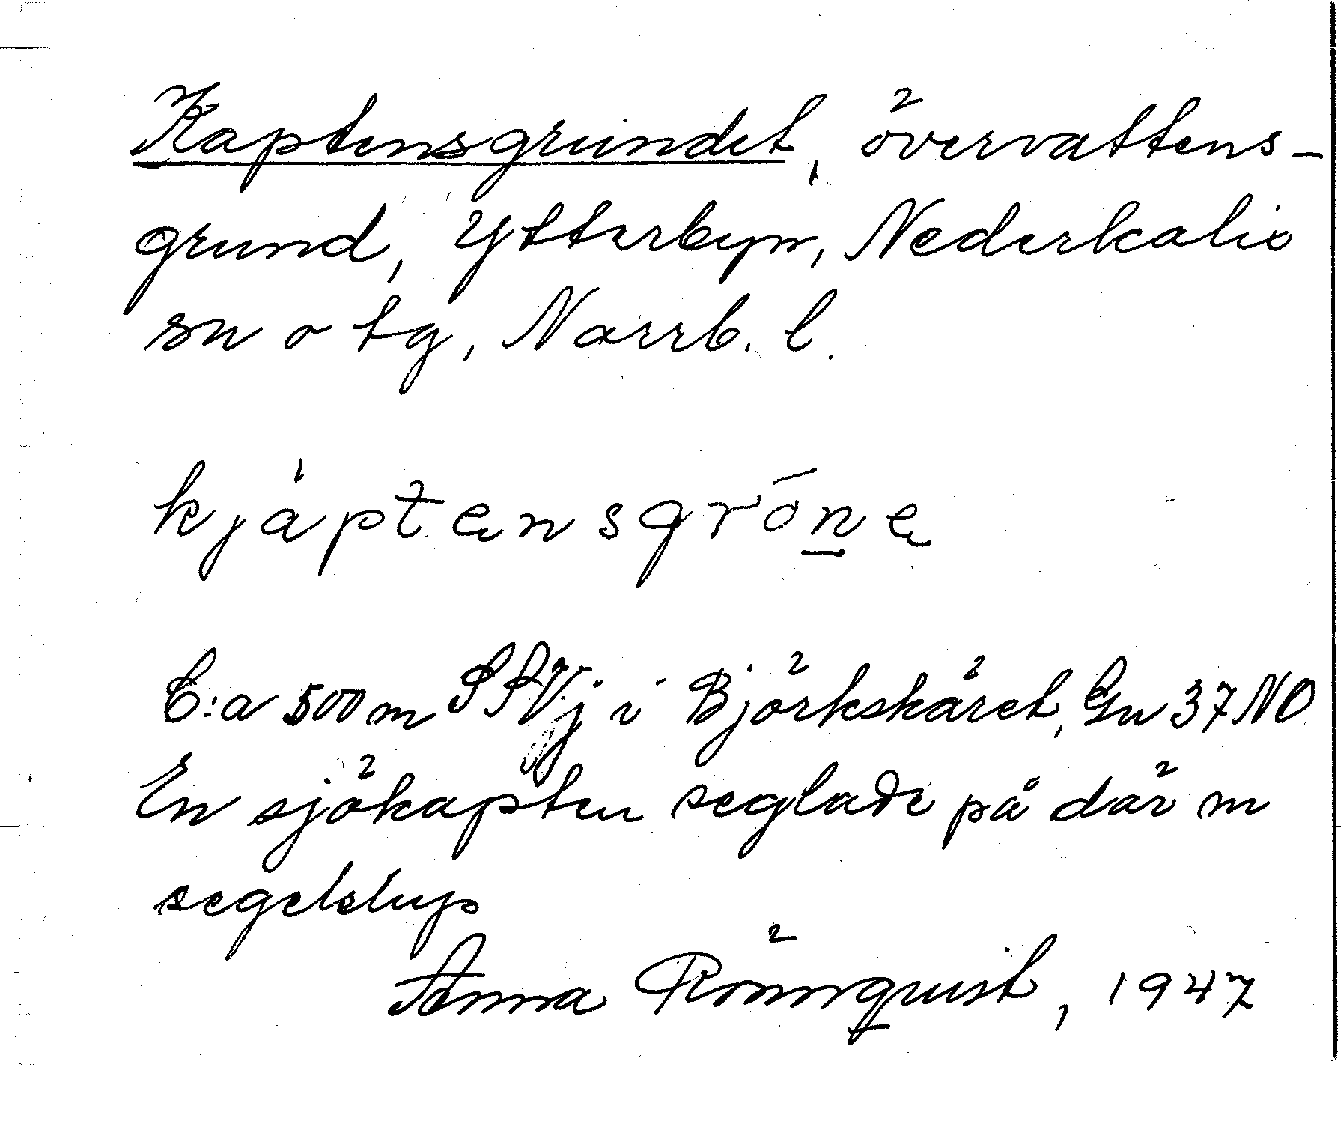 Kaptensgrundet, övervattens-
grund, Ytterbyn, Nederkalix
sn o tg, Norrb. l.
kjaptensgróne
C:a 500 m SSV j i Björkskäret, Gn 37 NO
En sjökapten seglade på där m
segelskup
Anna Rönnquist, 1947